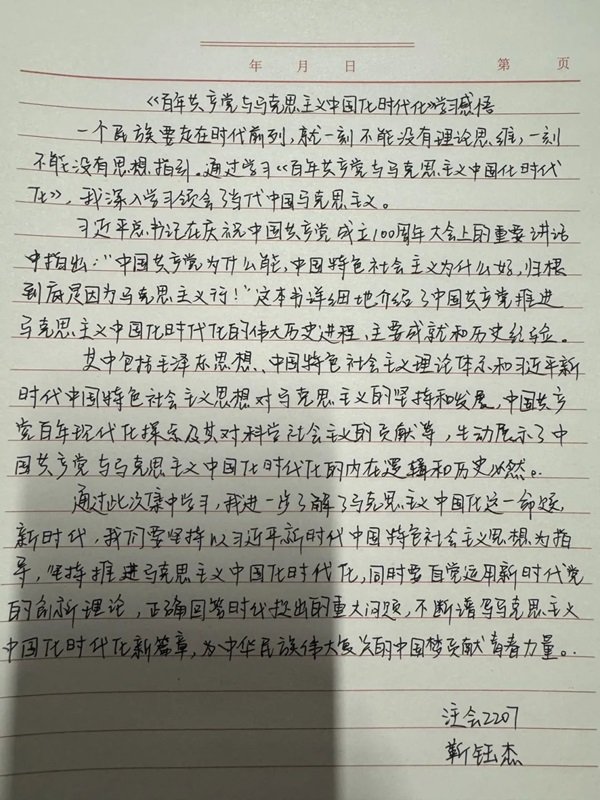 年 月 日 第 页
《百年共产党与马克思主义中国化时代化》学习感悟
一个民族要走在时代前列，就一刻不能没有理论思维，一刻
不能没有思想指引。通过学习《百年共产党与马克思主义中国化时代
化》，我深入学习领会了当代中国马克思主义。
习近平总书记在庆祝中国共产党成立100周年大会上的重要讲话
中指出：“中国共产党为什么能，中国特色社会主义为什么好，归根
到底是因为马克思主义行！”这本书详细地介绍了中国共产党推进
马克思主义中国化时代化的伟大历史进程、主要成就和历史经验。
其中包括毛泽东思想、中国特色社会主义理论体系和习近平新
时代中国特色社会主义思想对马克思主义的坚持和发展，中国共产
党百年现代化探索及其对科学社会主义的贡献等，生动展示了中
国共产党与马克思主义中国化时代化的内在逻辑和历史必然。
通过此次集中学习，我进一步了解了马克思主义中国化这一命题，
新时代，我们要坚持以习近平新时代中国特色社会主义思想为指
导，坚持推进马克思主义中国化时代化，同时要自觉运用新时代党
的创新理论，正确回答时代提出的重大问题，不断谱写马克思主义
中国化时代化新篇章，为中华民族伟大复兴的中国梦贡献青春力量。
注会2207
靳钰杰